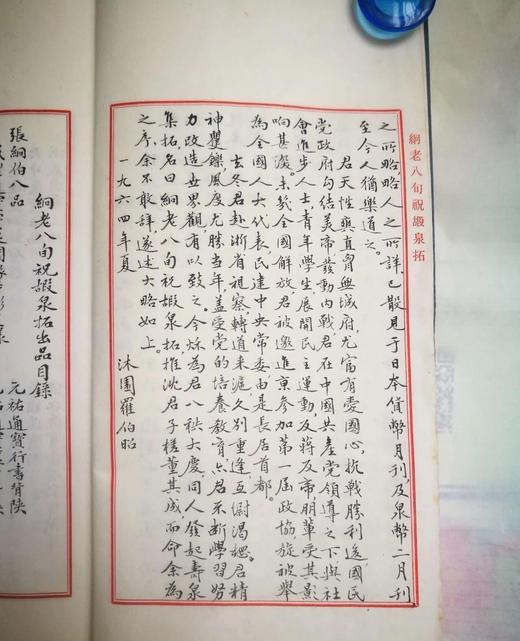 絅老八旬祝嘏泉拓
之所略,略人之所詳,已散見于日本貨幣月刊,及泉幣二月刊
至今人猶樂道之。
君天性爽直,胷無城府,尤富有愛國心,抗戰勝利後,國民
党政府勾结美帝發動内戰,君在中國共產党領導之下與社
會進步人士青年學生展開民主運動,及蔣反帝,朋輩受其影
响甚深。未幾全國解放,君被邀進京参加第一届政協,旋被舉
為全國人大代表,民建中央常委,由是長居首都。
去冬君赴浙省視察,轉道来滬,久别重逢,互慰渴想。君精
神矍鑠,風度尤勝當年,盖受党的培養教育,点君不断學習努
力改造世界觀,有以致之。今秋為君八秩大慶,同人發起壽泉
集拓名曰絅老八旬祝嘏泉拓,推沈君子槎董其成,而命余為
之序,余不敢辞,遂述大略如上。
一九六四年夏
沐園羅伯昭
絅老八旬祝嘏泉拓出品目錄
張絅伯八品
元祐通寳行書背陝